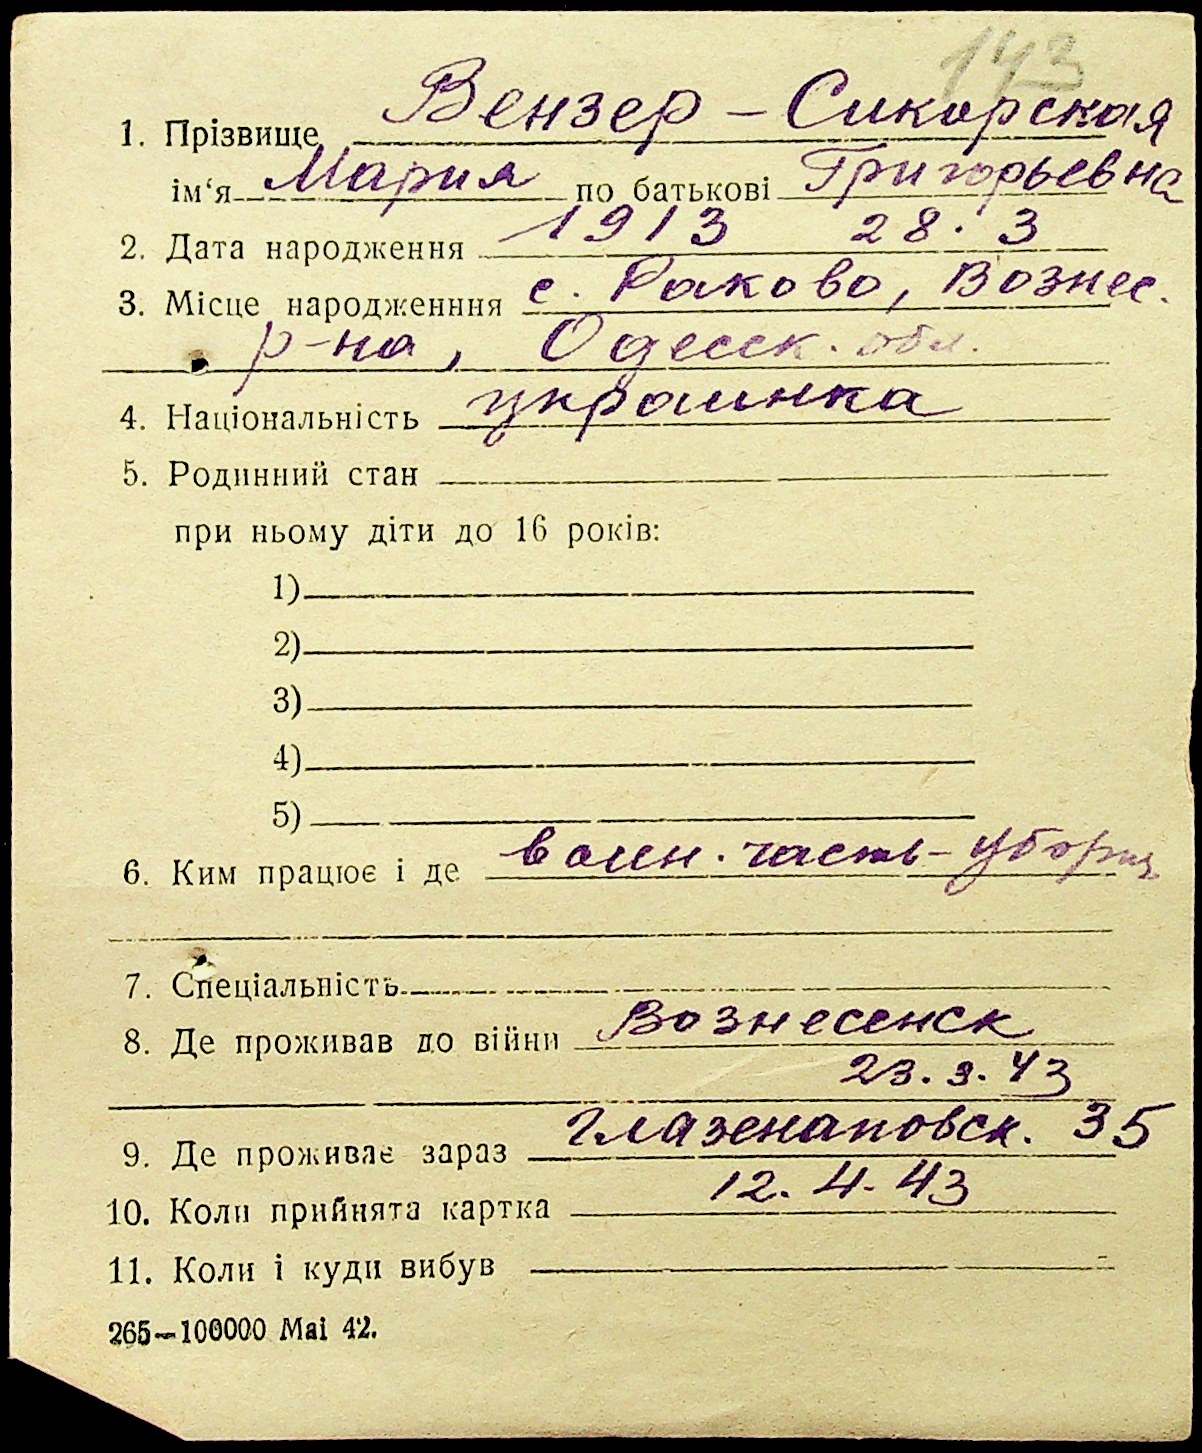 143
1. Прізвище Вензер – Сикорская
ім‘я Мария по батькові Григорьевна
2. Дата народження 1913 28. 3
3. Місце народженння с. Раково, Вознес.
р-на, Одесск. обл.
4. Національність украинка
5. Родинний стан
при ньому діти до 16 років:
1)
2)
3)
4)
5)
6. Ким працює і де воин. часть – уборщ
7. Спеціальність
8. Де проживав до війни Вознесенск
23. 3. 43
9. Де проживає зараз Глазенаповск. 35
10. Коли прийнята картка 12. 4. 43
11. Коли і куди вибув
265—100000 Mai 42.